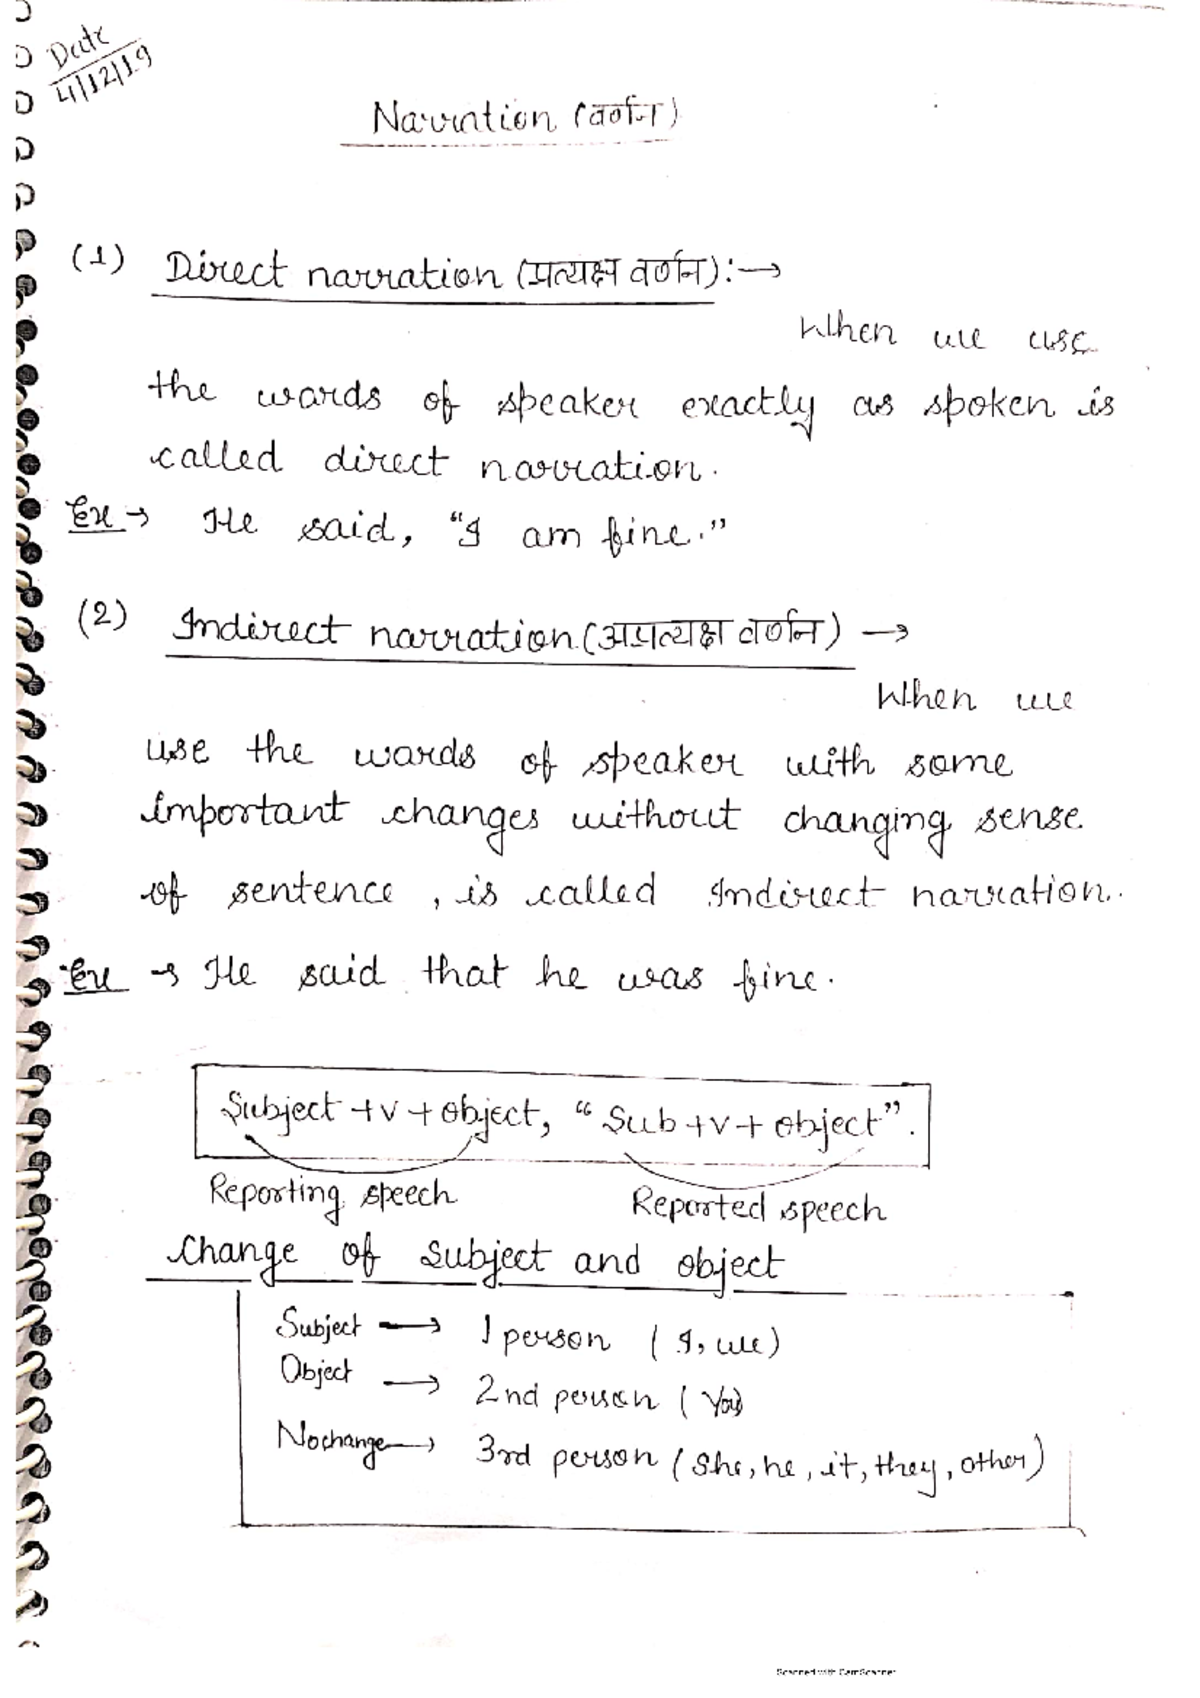 Date
4/12/19
Narration (वर्णन)
(1) Direct narration (प्रत्यक्ष वर्णन):→
When we use
the words of speaker exactly as spoken is
called direct narration.
Ex → He said, "I am fine."
(2) Indirect narration (अप्रत्यक्ष वर्णन) →
When we
use the words of speaker with some
important changes without changing sense
of sentence, is called Indirect narration.
Ex → He said that he was fine.
Subject +v + object, "Sub +v + object".
Reporting speech Reported speech
Change of subject and object
Subject → 1 person (I, we)
Object → 2nd person (You)
No change → 3rd person (She, he, it, they, other)
Scanned with CamScanner